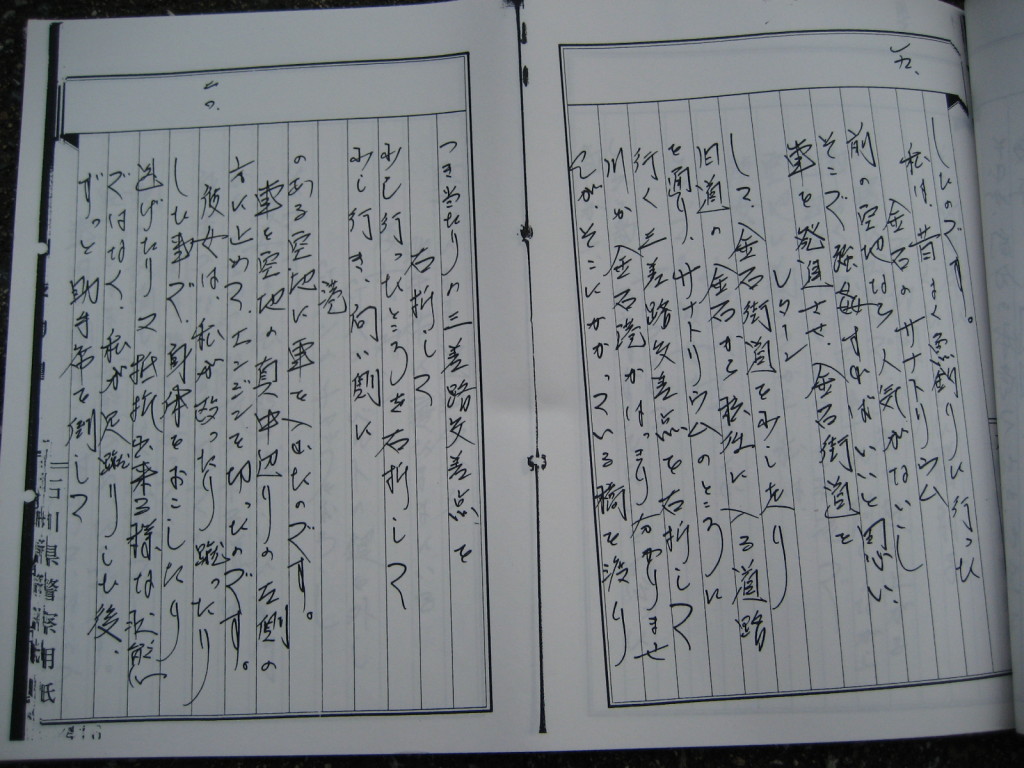 一九、
したのです。
私は、昔よく魚釣りに行った
金石のサナトリウム
前の空地なら人気がないし
そこで強姦すればいいと思い、
車を発進させ、金石街道を
Uターン
して、金石街道を少し走り
旧道の金石から粟崎に入る道路
を通り、サナトリウムのところに
行く三差路交差点を右折して
川か金石港かはっきり分かりませ
んが、そこにかかっている橋を渡り
二〇、
つき当たりの三差路交差点を
右折して
少し行ったところを右折して
少し行き、向い側に
港
のある空地に車を入れたのです。
車を空地の真中辺りの左側の
方に止めて、エンジンを切ったのです。
彼女は、私が殴ったり蹴ったり
した事で、身体をおこしたり
逃げたり又抵抗出来る様な状態
ではなく、私が足蹴りした後、
ずっと助手席を倒して
石川県警察用紙